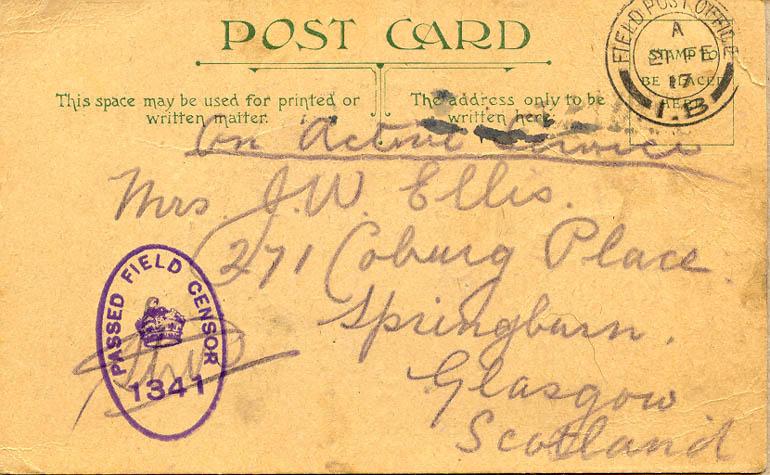 POST CARD
FIELD POST OFFICE
A
FE
17
1.B
STAMP TO
BE PLACED
This space may be used for printed or
written matter.
The address only to be
written here.
On Active Service
Mrs. J.W. Ellis.
271 Coburg Place.
Springburn.
Glasgow
Scotland
PASSED FIELD CENSOR
1341